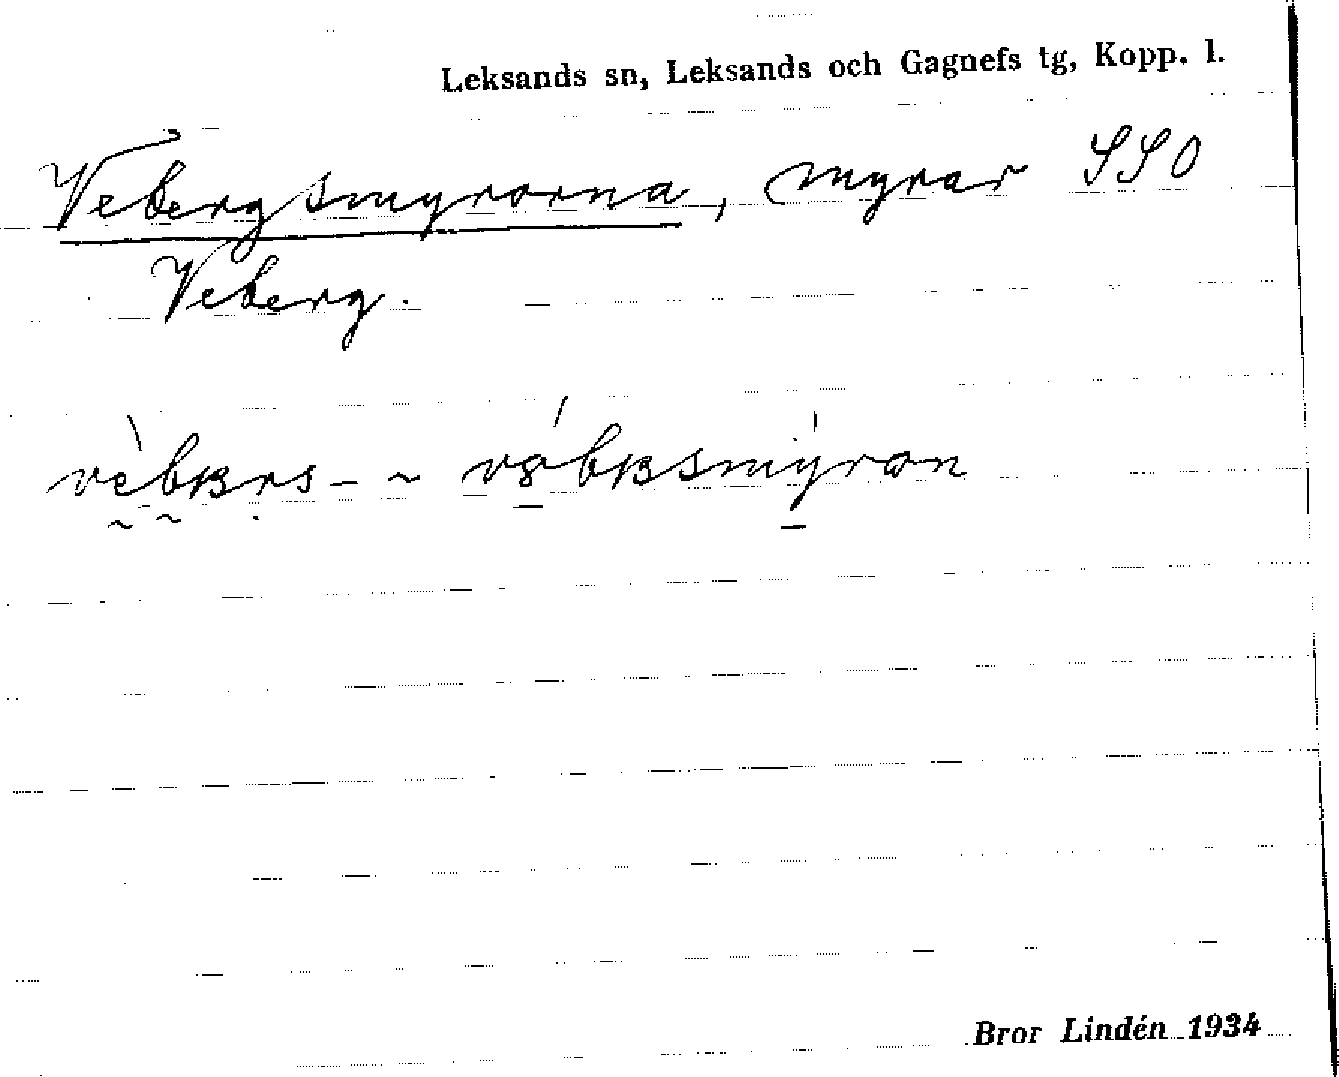 Leksands sn, Leksands och Gagnefs tg, Kopp. l.
Vebergsmyrorna, myrar SSO
Veberg.
vèbʀrs- ~ vȣ́bʀsmýrɑn
Bror Lindén 1934